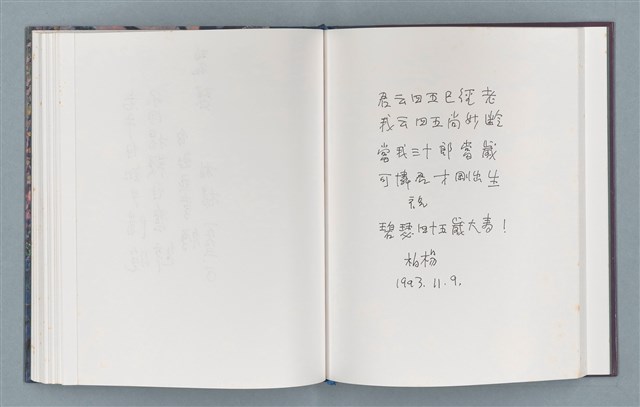 君云四五已經老
我云四五尚妙齡
當我三十郎當歲
可憐君才剛出生
祝
碧瑟四十五歲大壽！
柏楊
1993. 11. 9.